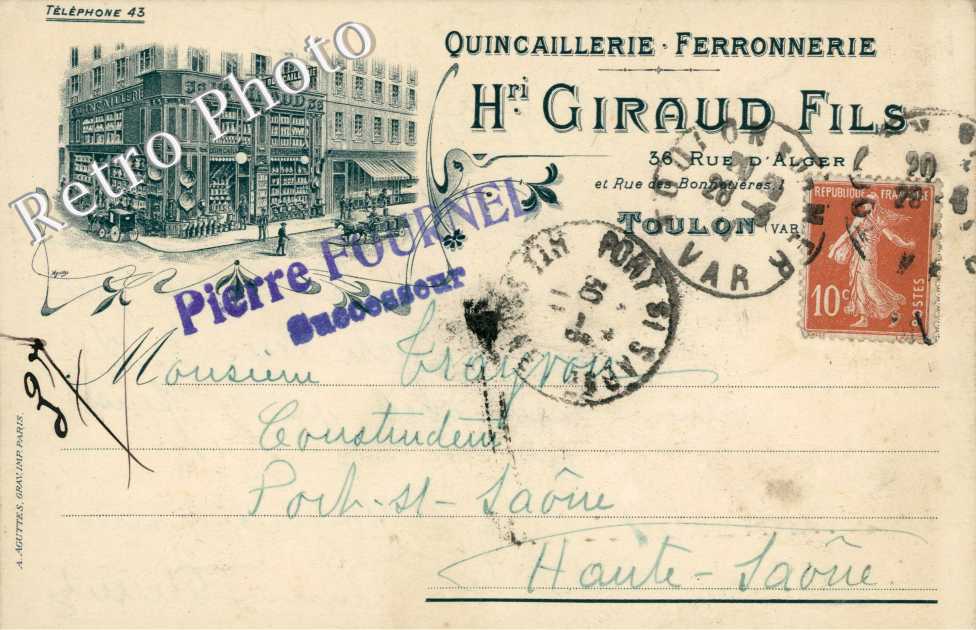 TÉLÉPHONE 43
QUINCAILLERIE · FERRONNERIE
Hri GIRAUD FILS
36 RUE D'ALGER
et Rue des Bonnetières, 1
TOULON (VAR)
QUINCAILLERIE
Retro Photo
Pierre FOURNEL
Successeur
TOULON
VAR
PORT S/ SAÔNE
REPUBLIQUE FRANÇAISE
10c
POSTES
Monsieur Traÿvou
Constructeur
Port-st-Saône
Haute-Saône
A. AGUTTES, GRAV. IMP. PARIS.